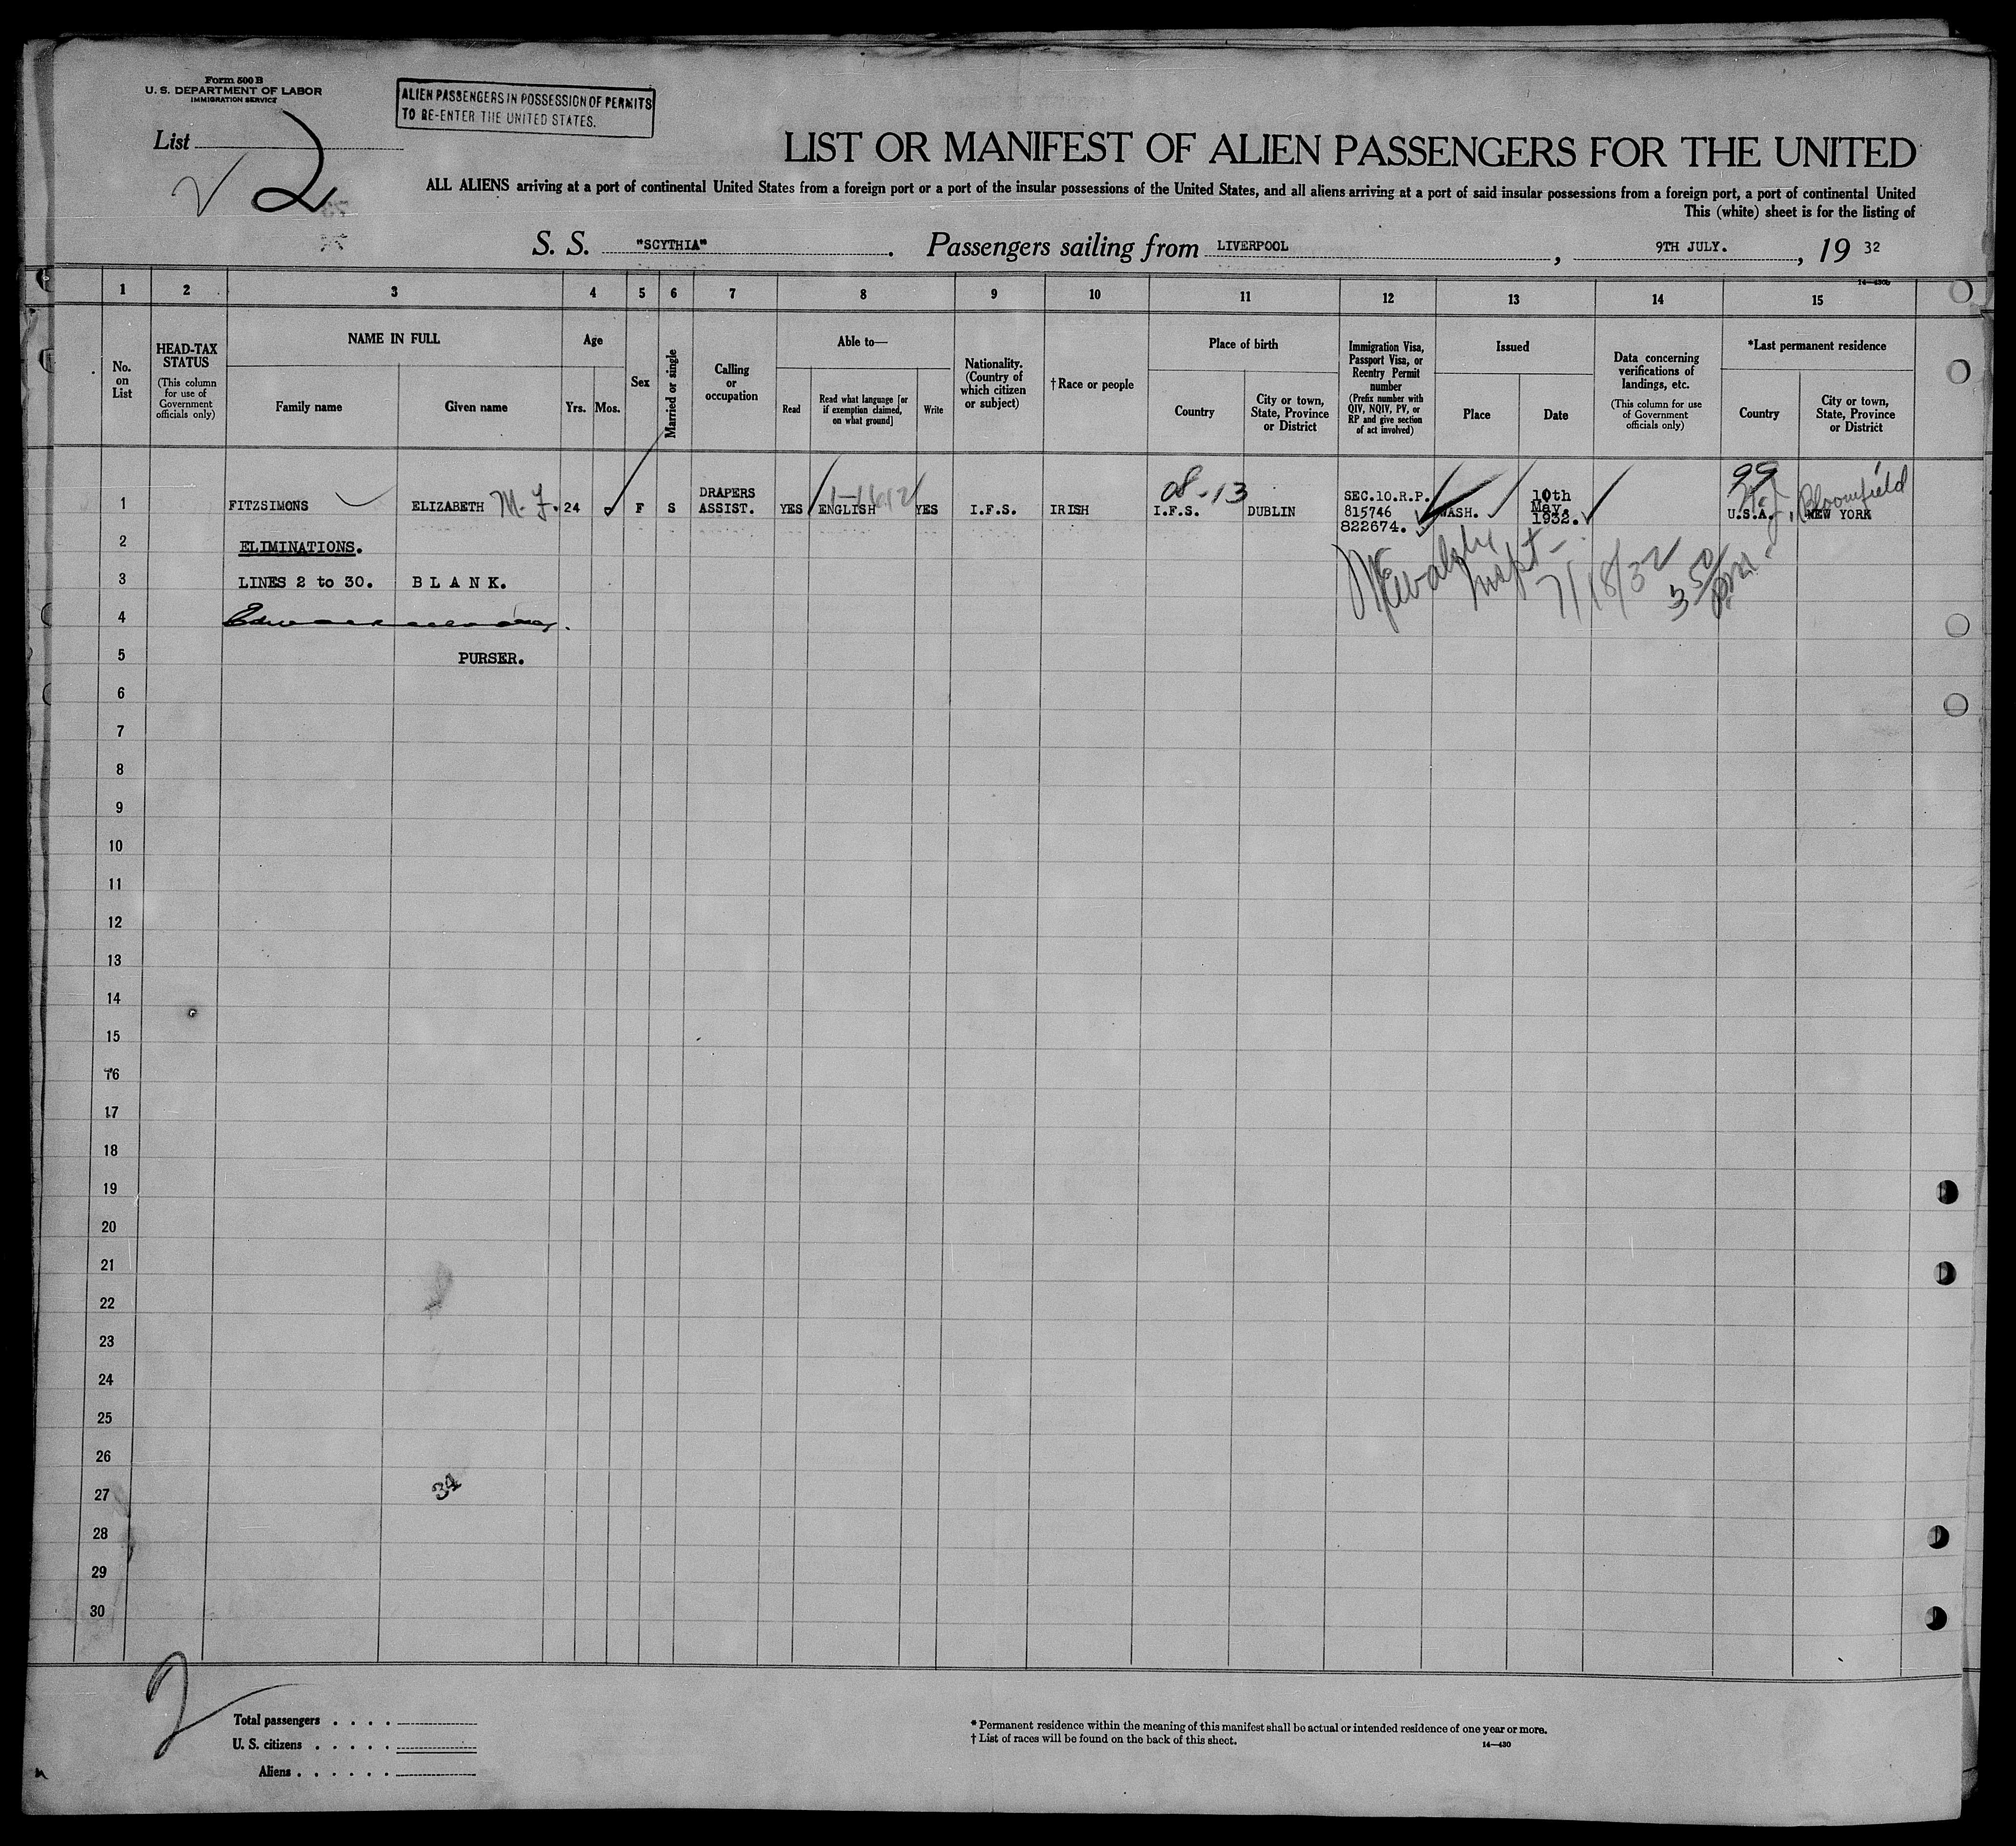 Form 500 B
U. S. DEPARTMENT OF LABOR
IMMIGRATION SERVICE
ALIEN PASSENGERS IN POSSESSION OF PERMITS
TO RE-ENTER THE UNITED STATES.
List
2
LIST OR MANIFEST OF ALIEN PASSENGERS FOR THE UNITED
ALL ALIENS arriving at a port of continental United States from a foreign port or a port of the insular possessions of the United States, and all aliens arriving at a port of said insular possessions from a foreign port, a port of continental United
This (white) sheet is for the listing of
S. S. "SCYTHIA". Passengers sailing from LIVERPOOL, 9TH JULY., 19 32
14—430b
1 2 3 4 5 6 7 8 9 10 11 12 13 14 15
No. on List
HEAD-TAX STATUS
(This column for use of Government officials only)
NAME IN FULL
Family name Given name
Age
Yrs. Mos.
Sex
Married or single
Calling or occupation
Able to—
Read
Read what language [or if exemption claimed, on what ground]
Write
Nationality. (Country of which citizen or subject)
†Race or people
Place of birth
Country
City or town, State, Province or District
Immigration Visa, Passport Visa, or Reentry Permit number
(Prefix number with QIV, NQIV, PV, or RP and give section of act involved)
Issued
Place Date
Data concerning verifications of landings, etc.
(This column for use of Government officials only)
*Last permanent residence
Country
City or town, State, Province or District
1 FITZSIMONS ELIZABETH M. F. 24 F S DRAPERS ASSIST. YES ENGLISH YES I.F.S. IRISH I.F.S. DUBLIN SEC.10.R.P. 815746 822674. WASH. 10th May. 1932. 99 U.S.A. Bloomfield NEW YORK
2 ELIMINATIONS.
3 LINES 2 to 30. B L A N K.
Inspt 7/18/32
4
5 PURSER.
6
7
8
9
10
11
12
13
14
15
16
17
18
19
20
21
22
23
24
25
26
27
34
28
29
30
2
Total passengers . . . .
U. S. citizens . . . . .
Aliens . . . . . .
* Permanent residence within the meaning of this manifest shall be actual or intended residence of one year or more.
† List of races will be found on the back of this sheet.
14—430